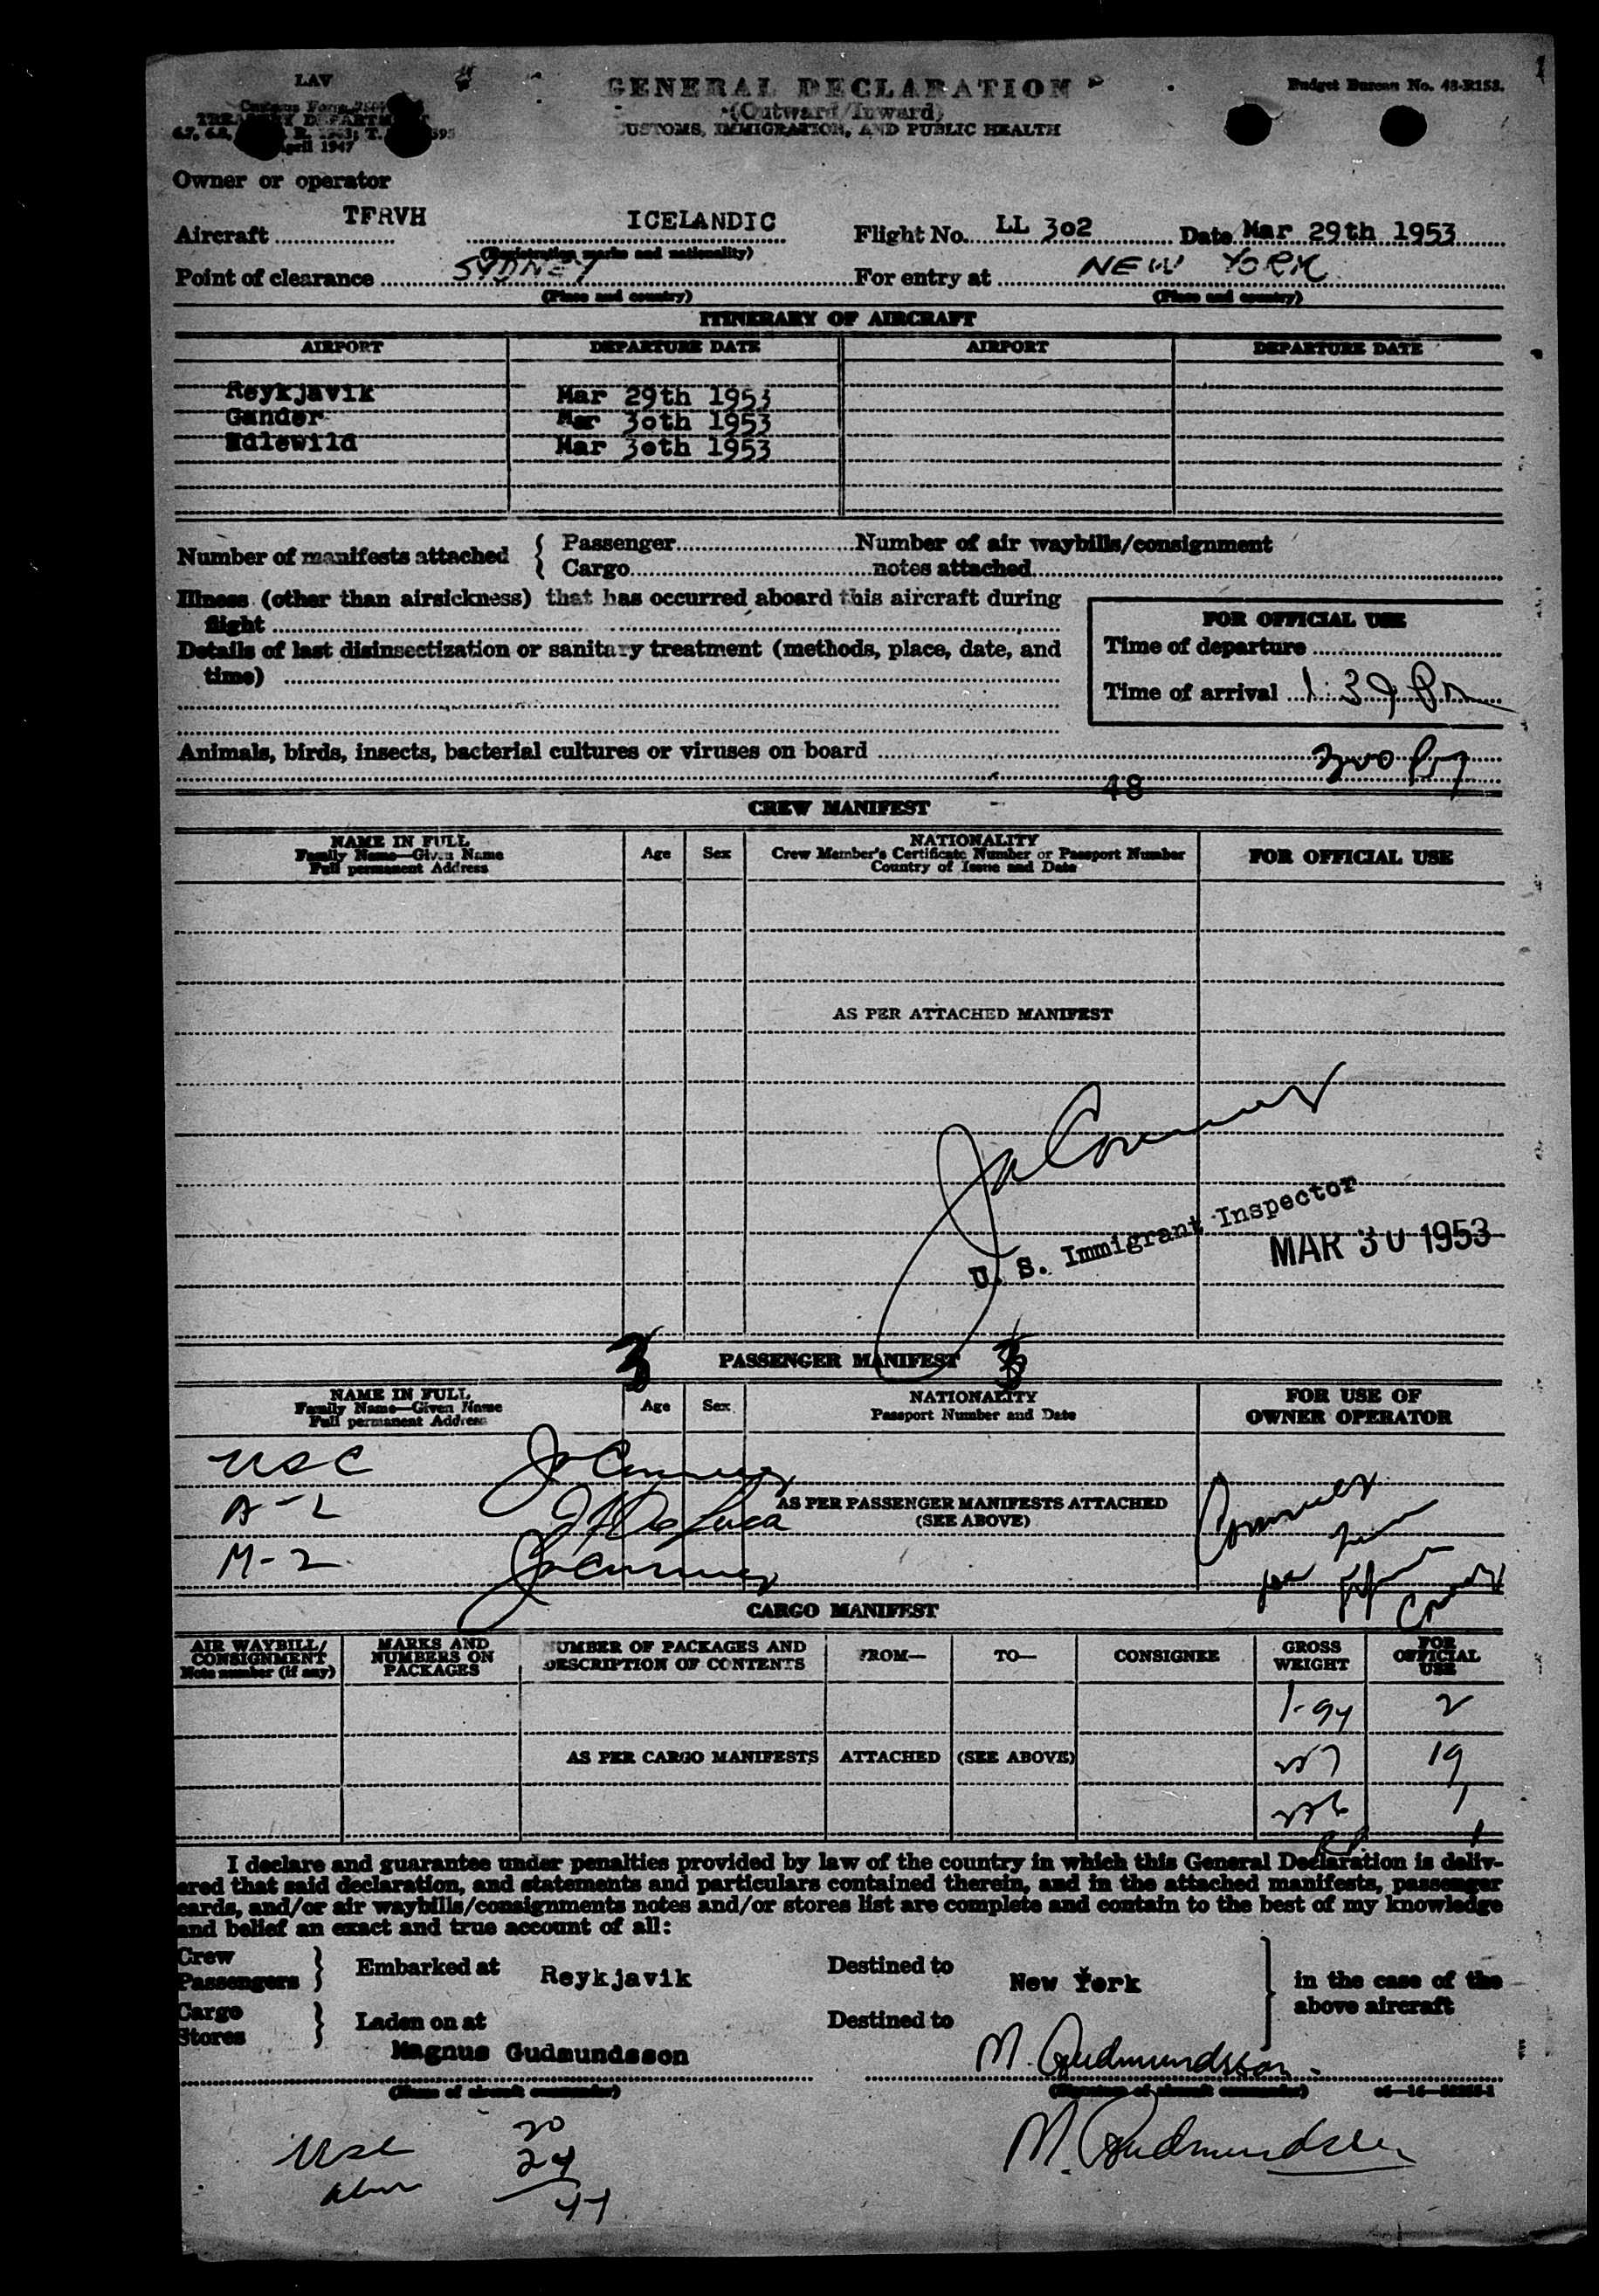 LAV
GENERAL DECLARATION
Budget Bureau No. 48-R153.
Customs Form
(Outward/Inward)
TREASURY DEPARTMENT
CUSTOMS, IMMIGRATION, AND PUBLIC HEALTH
April 1947
Owner or operator
Aircraft TFRVH ICELANDIC Flight No. LL 302 Date Mar 29th 1953
(Registration marks and nationality)
Point of clearance SYDNEY For entry at NEW YORK
(Place and country) (Place and country)
ITINERARY OF AIRCRAFT
AIRPORT DEPARTURE DATE AIRPORT DEPARTURE DATE
Reykjavik Mar 29th 1953
Gander Mar 30th 1953
Idlewild Mar 30th 1953
Number of manifests attached { Passenger Number of air waybills/consignment
Cargo notes attached
Illness (other than airsickness) that has occurred aboard this aircraft during
flight
FOR OFFICIAL USE
Details of last disinsectization or sanitary treatment (methods, place, date, and
time)
Time of departure
Time of arrival 1:39 Pm
Animals, birds, insects, bacterial cultures or viruses on board
48
CREW MANIFEST
NAME IN FULL Age Sex NATIONALITY FOR OFFICIAL USE
Family Name—Given Name Crew Member's Certificate Number or Passport Number
Full permanent Address Country of Issue and Date
AS PER ATTACHED MANIFEST
U. S. Immigrant Inspector
MAR 30 1953
3 PASSENGER MANIFEST
NAME IN FULL Age Sex NATIONALITY FOR USE OF
Family Name—Given Name Passport Number and Date OWNER OPERATOR
Full permanent Address
USC
A-L J De Luca AS PER PASSENGER MANIFESTS ATTACHED
(SEE ABOVE)
M-2
CARGO MANIFEST
AIR WAYBILL/ MARKS AND NUMBER OF PACKAGES AND FROM— TO— CONSIGNEE GROSS FOR
CONSIGNMENT NUMBERS ON DESCRIPTION OF CONTENTS WEIGHT OFFICIAL
Note number (if any) PACKAGES USE
1-94 2
AS PER CARGO MANIFESTS ATTACHED (SEE ABOVE) 257 19
1
I declare and guarantee under penalties provided by law of the country in which this General Declaration is deliv-
ered that said declaration, and statements and particulars contained therein, and in the attached manifests, passenger
cards, and/or air waybills/consignments notes and/or stores list are complete and contain to the best of my knowledge
and belief an exact and true account of all:
Crew
Passengers } Embarked at Reykjavik Destined to New York } in the case of the
above aircraft
Cargo
Stores } Laden on at Destined to
Magnus Gudmundsson M. Gudmundsson
(Name of aircraft commander) (Signature of aircraft commander)
USC 20 M. Gudmundsson
alien 24
44